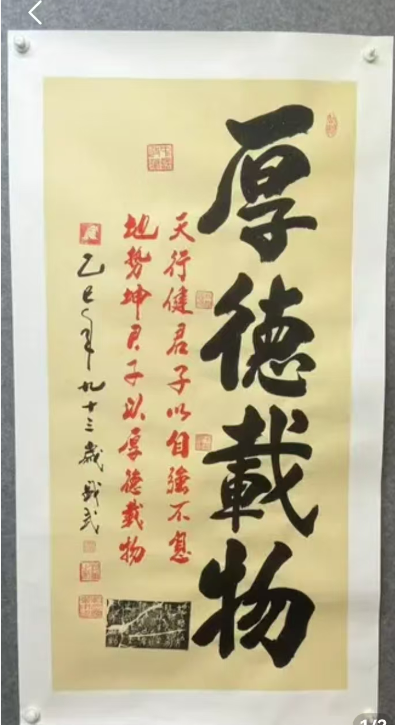 厚德載物
天行健君子以自強不息
地势坤君子以厚德载物
乙巳年九十三歲
1/2